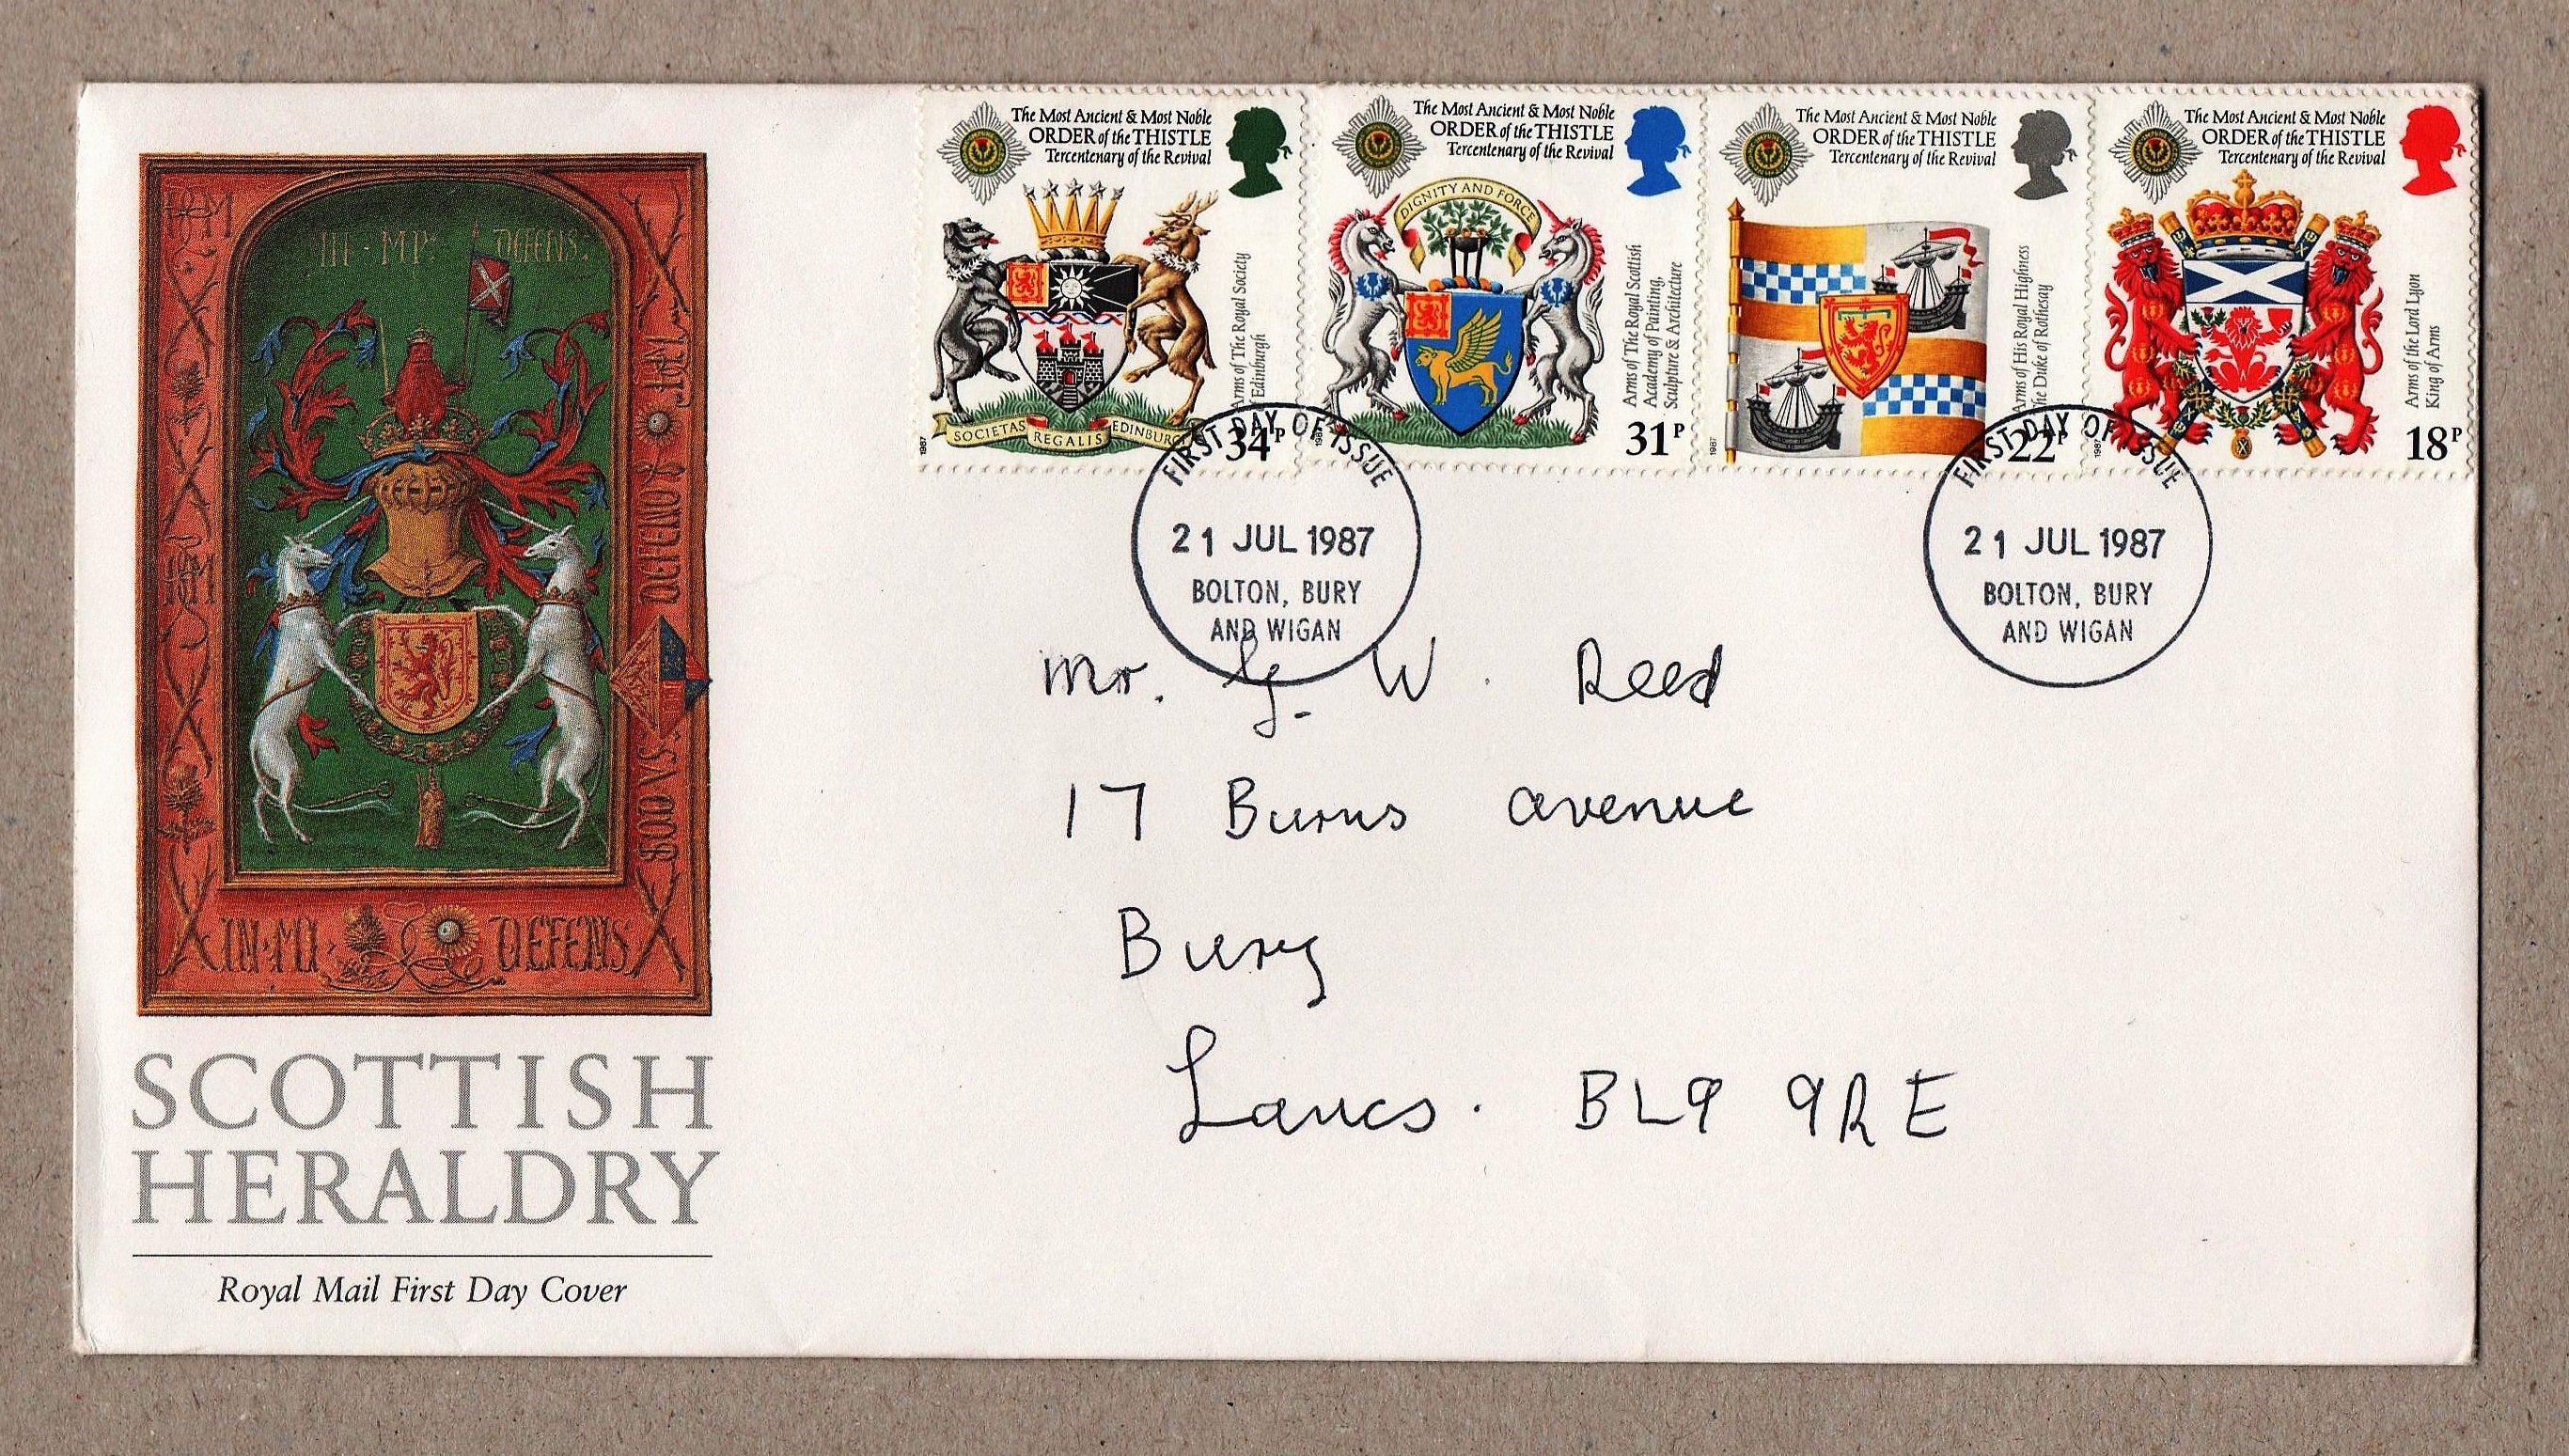 The Most Ancient & Most Noble
ORDER of the THISTLE
Tercentenary of the Revival
Arms of The Royal Society
of Edinburgh
SOCIETAS REGALIS EDINBURGI
1987
34P
The Most Ancient & Most Noble
ORDER of the THISTLE
Tercentenary of the Revival
DIGNITY AND FORCE
Arms of The Royal Scottish
Academy of Painting,
Sculpture & Architecture
1987
31P
The Most Ancient & Most Noble
ORDER of the THISTLE
Tercentenary of the Revival
Arms of His Royal Highness
The Duke of Rothesay
1987
22P
The Most Ancient & Most Noble
ORDER of the THISTLE
Tercentenary of the Revival
Arms of the Lord Lyon
King of Arms
1987
18P
FIRST DAY OF ISSUE
21 JUL 1987
BOLTON, BURY
AND WIGAN
FIRST DAY OF ISSUE
21 JUL 1987
BOLTON, BURY
AND WIGAN
IN · MY · DEFENS
IN · MI · DEFENS
Mr. G. W. Reed
17 Burns avenue
Bury
Lancs. BL9 9RE
SCOTTISH
HERALDRY
Royal Mail First Day Cover